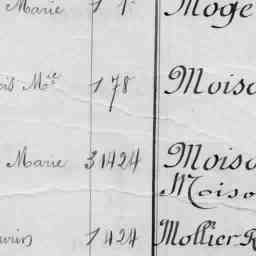 Marie 1 1 Moge
ois Mce 1 78 Moiso
Marie 31424 Moiso
Moiso
1 424 Mollier R